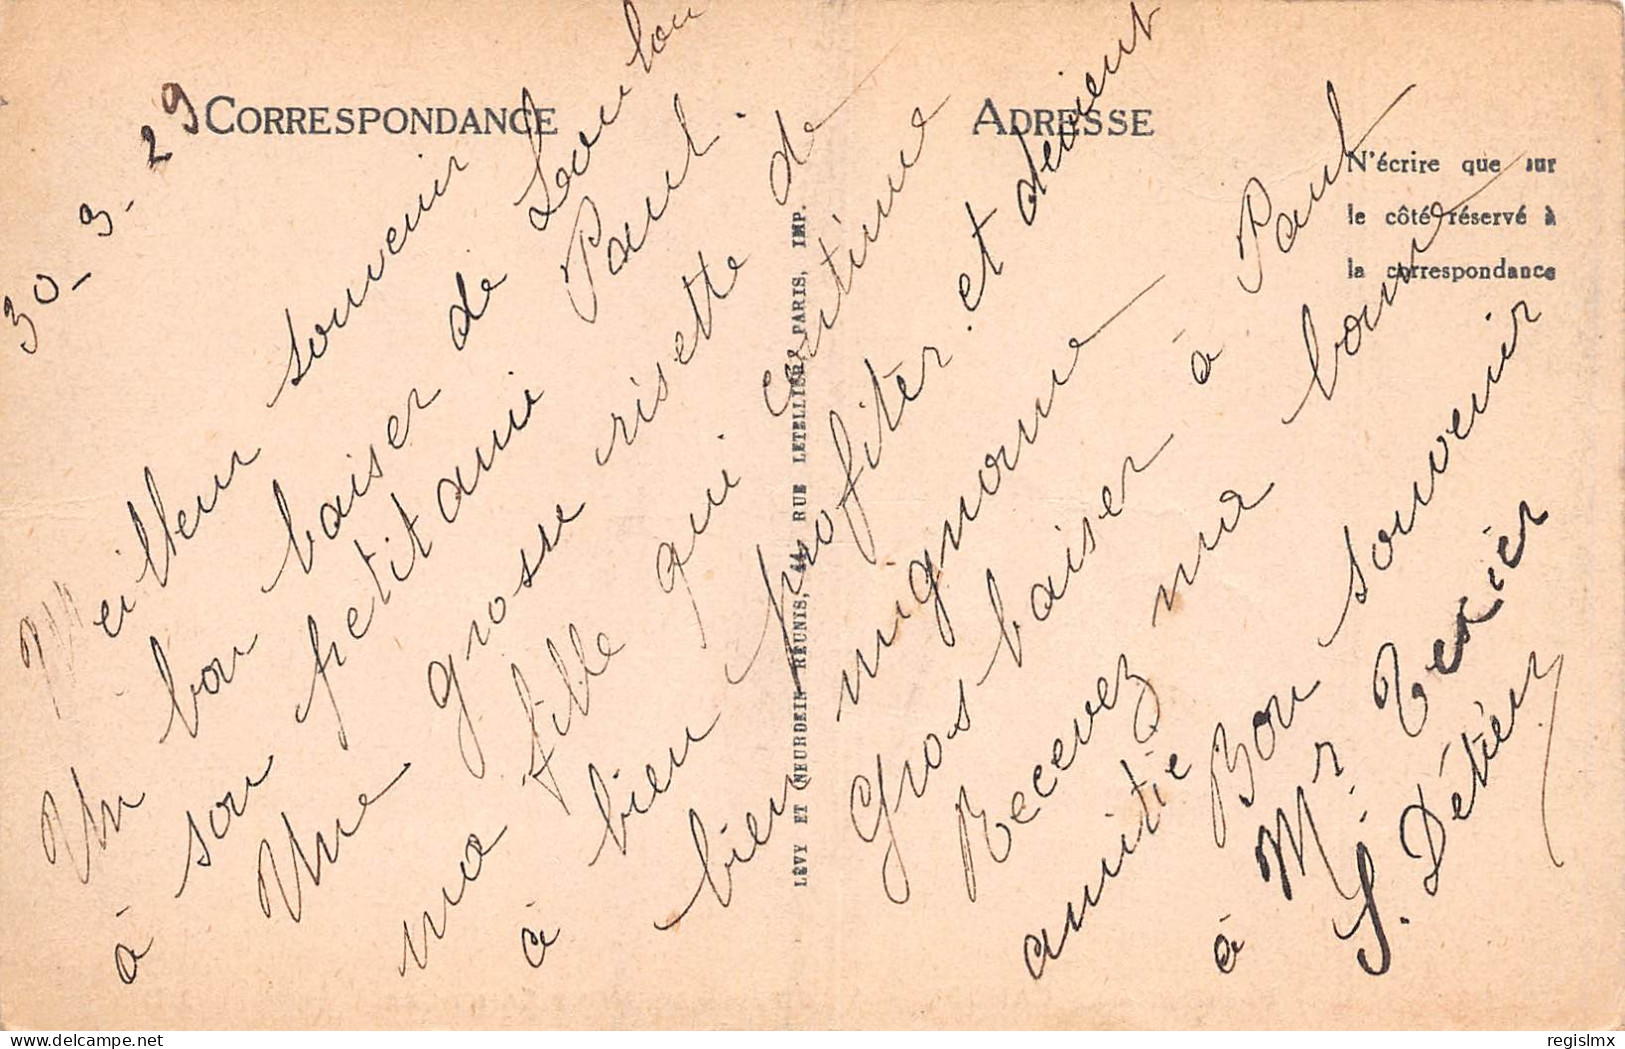 30-3-29
CORRESPONDANCE
ADRESSE
N'écrire que sur
le côté réservé à
la correspondance
Meilleur souvenir
Un bon baiser de Loulou
à son petit ami Paul.
Une grosse risette de
ma fille qui continue
à bien profiter et devient
bien mignonne
Gros baiser à Paul
Recevez ma bonne
amitié Bon souvenir
à Mr Texier
S. Détieux
LÉVY ET NEURDEIN RÉUNIS, 44, RUE LETELLIER, PARIS, IMP.
regislmx